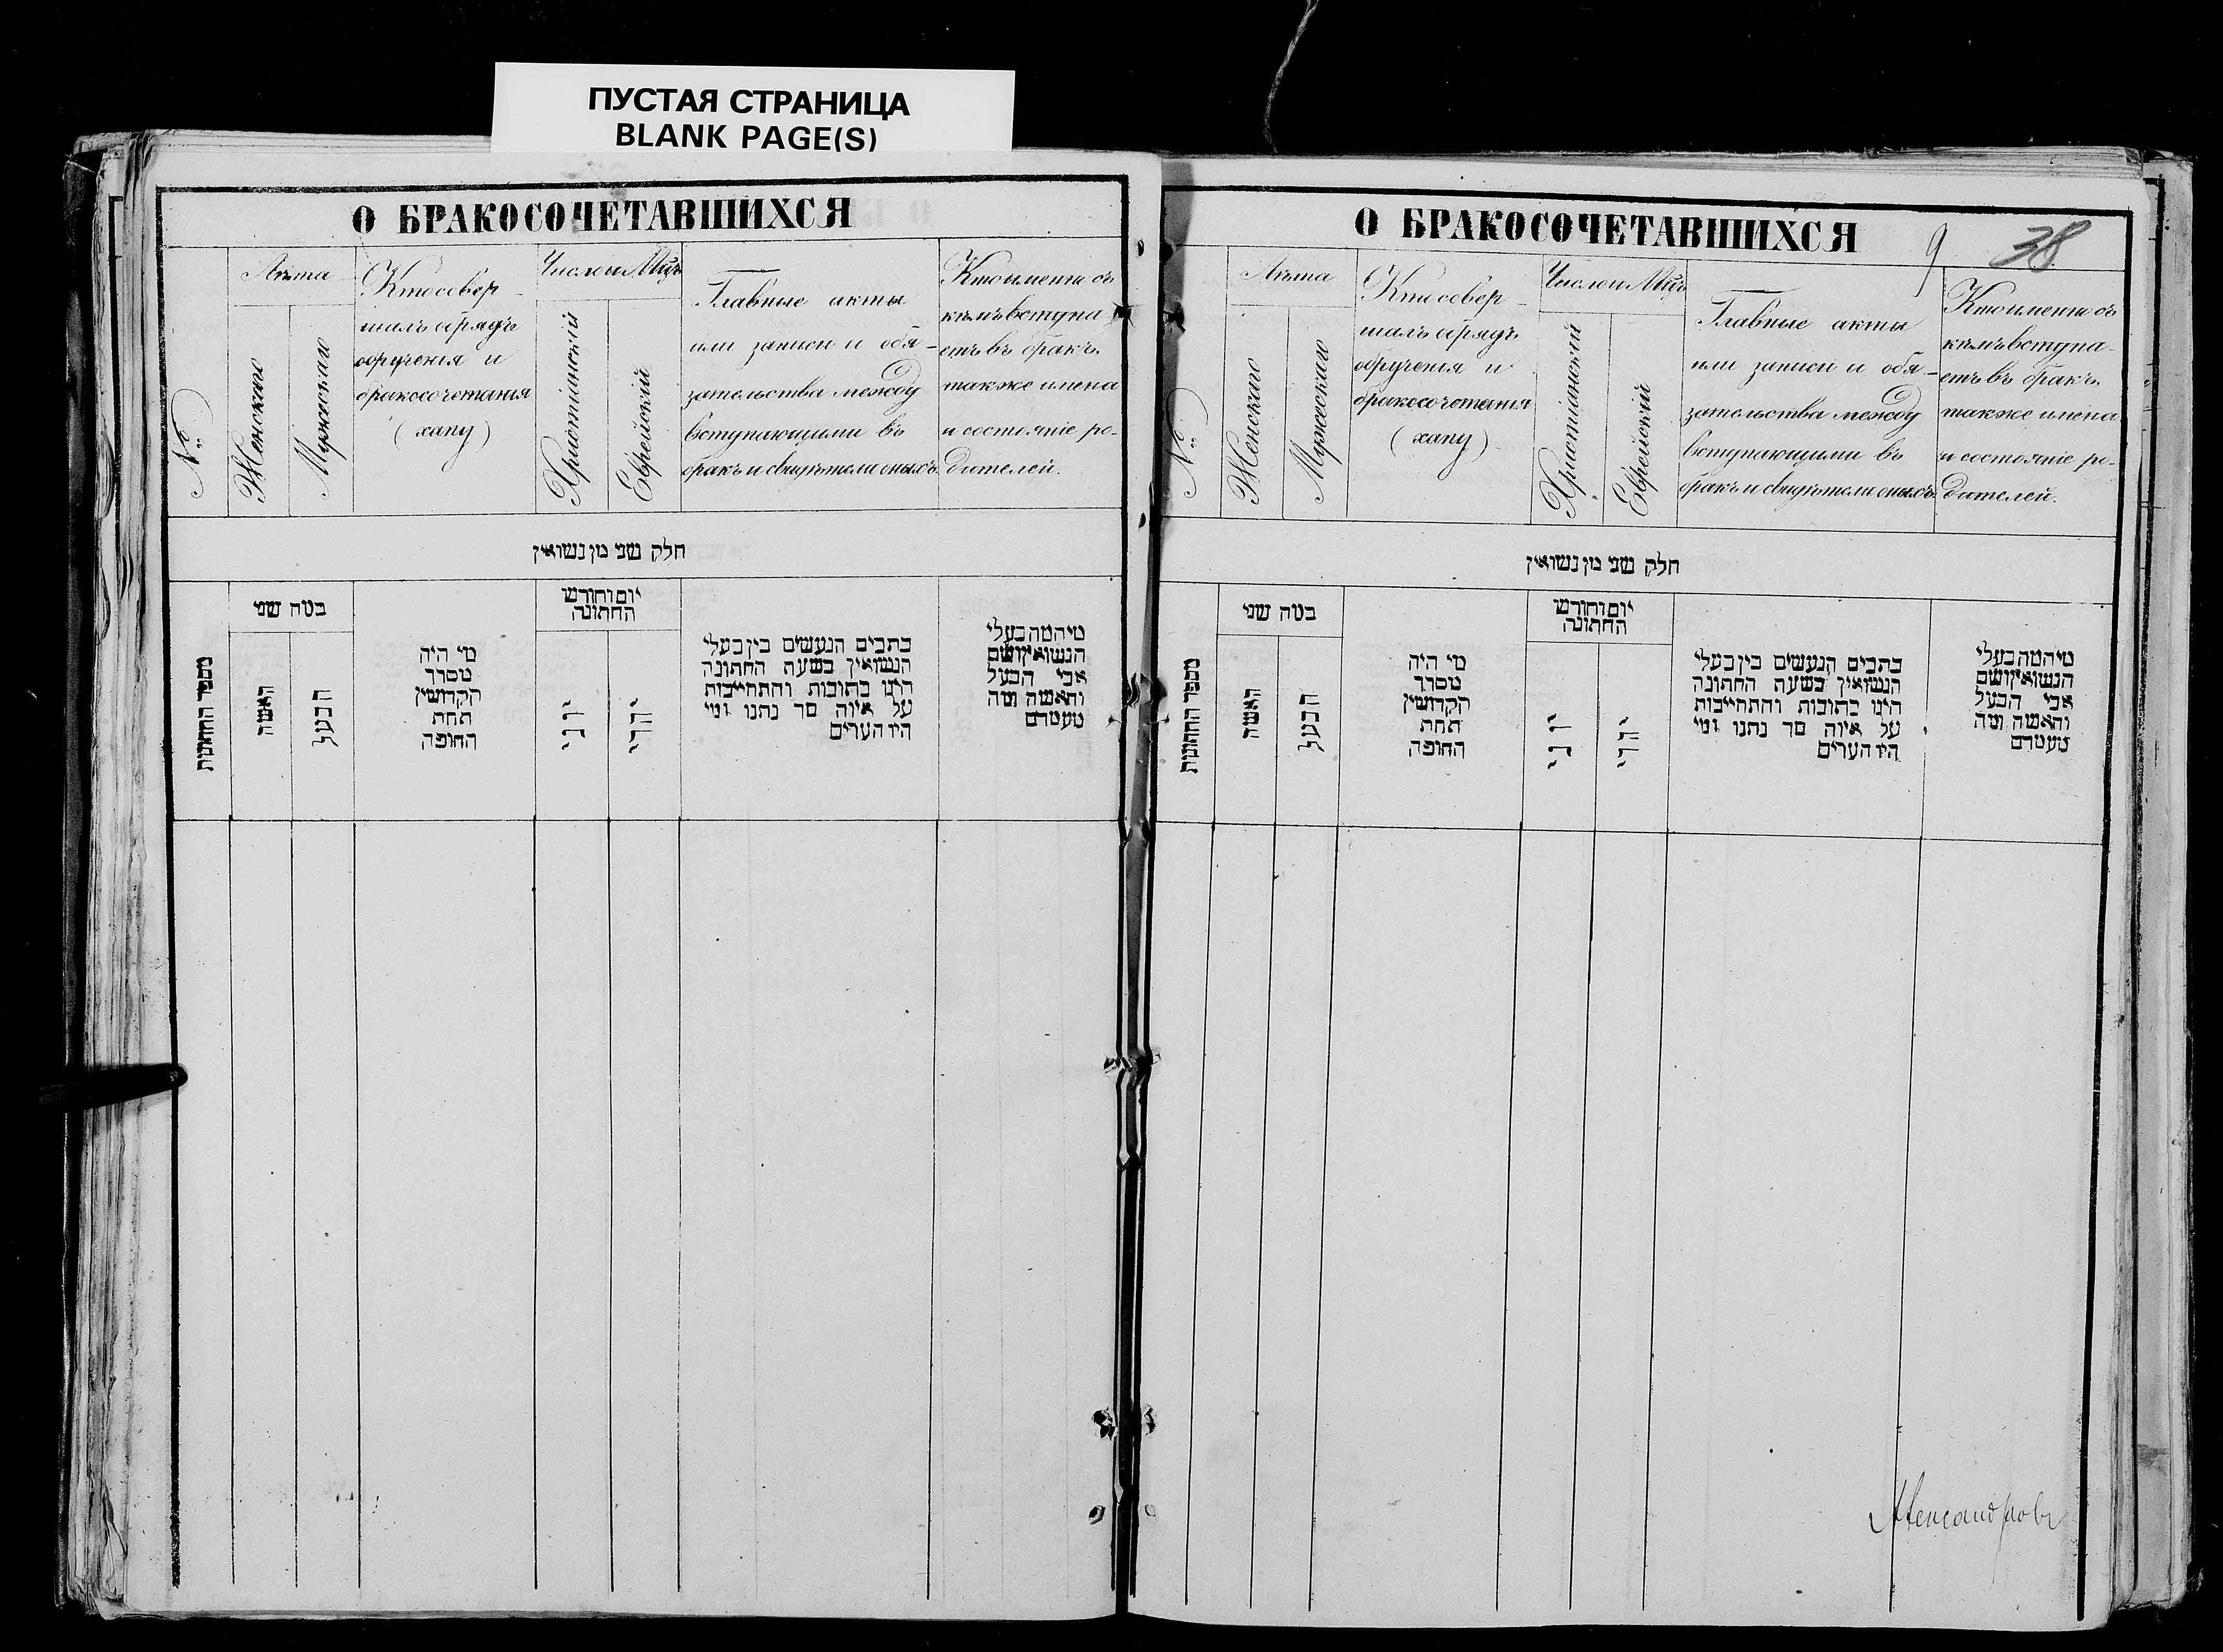 ПУСТАЯ СТРАНИЦА
BLANK PAGE(S)
О БРАКОСОЧЕТАВШИХСЯ
№
Лѣта
Женскаго
Мужескаго
Кто совер-
шалъ обрядъ
обрученія и
бракосочетанія
(хапу)
Число и Мцъ
Христіанскій
Еврейскій
Главные акты
или записи и обя-
зательства между
вступающими въ
бракъ и свидѣтели оныхъ
Кто именно съ
кѣмъ вступа-
етъ въ бракъ,
также имена
и состояніе ро-
дителей.
חלק שני מן נשואין
מספר החתונות
במה שני
האשה
הבעל
מי היה
מסדר
הקדושין
תחת
החופה
יום וחודש
החתונה
יוני
יודי
כתבים הנעשים בין בעלי
הנשואין בשעת החתונה
היינו כתובות והתחייבות
על איזה סך נתנו ומי
היו העדים
מי המה בעלי
הנשואין ושם
אבי הבעל
והאשה ומה
מעמדם
О БРАКОСОЧЕТАВШИХСЯ
9
38
№
Лѣта
Женскаго
Мужескаго
Кто совер-
шалъ обрядъ
обрученія и
бракосочетанія
(хапу)
Число и Мцъ
Христіанскій
Еврейскій
Главные акты
или записи и обя-
зательства между
вступающими въ
бракъ и свидѣтели оныхъ
Кто именно съ
кѣмъ вступа-
етъ въ бракъ,
также имена
и состояніе ро-
дителей.
חלק שני מן נשואין
מספר החתונות
במה שני
האשה
הבעל
מי היה
מסדר
הקדושין
תחת
החופה
יום וחודש
החתונה
יוני
יודי
כתבים הנעשים בין בעלי
הנשואין בשעת החתונה
היינו כתובות והתחייבות
על איזה סך נתנו ומי
היו העדים
מי המה בעלי
הנשואין ושם
אבי הבעל
והאשה ומה
מעמדם
Александровъ